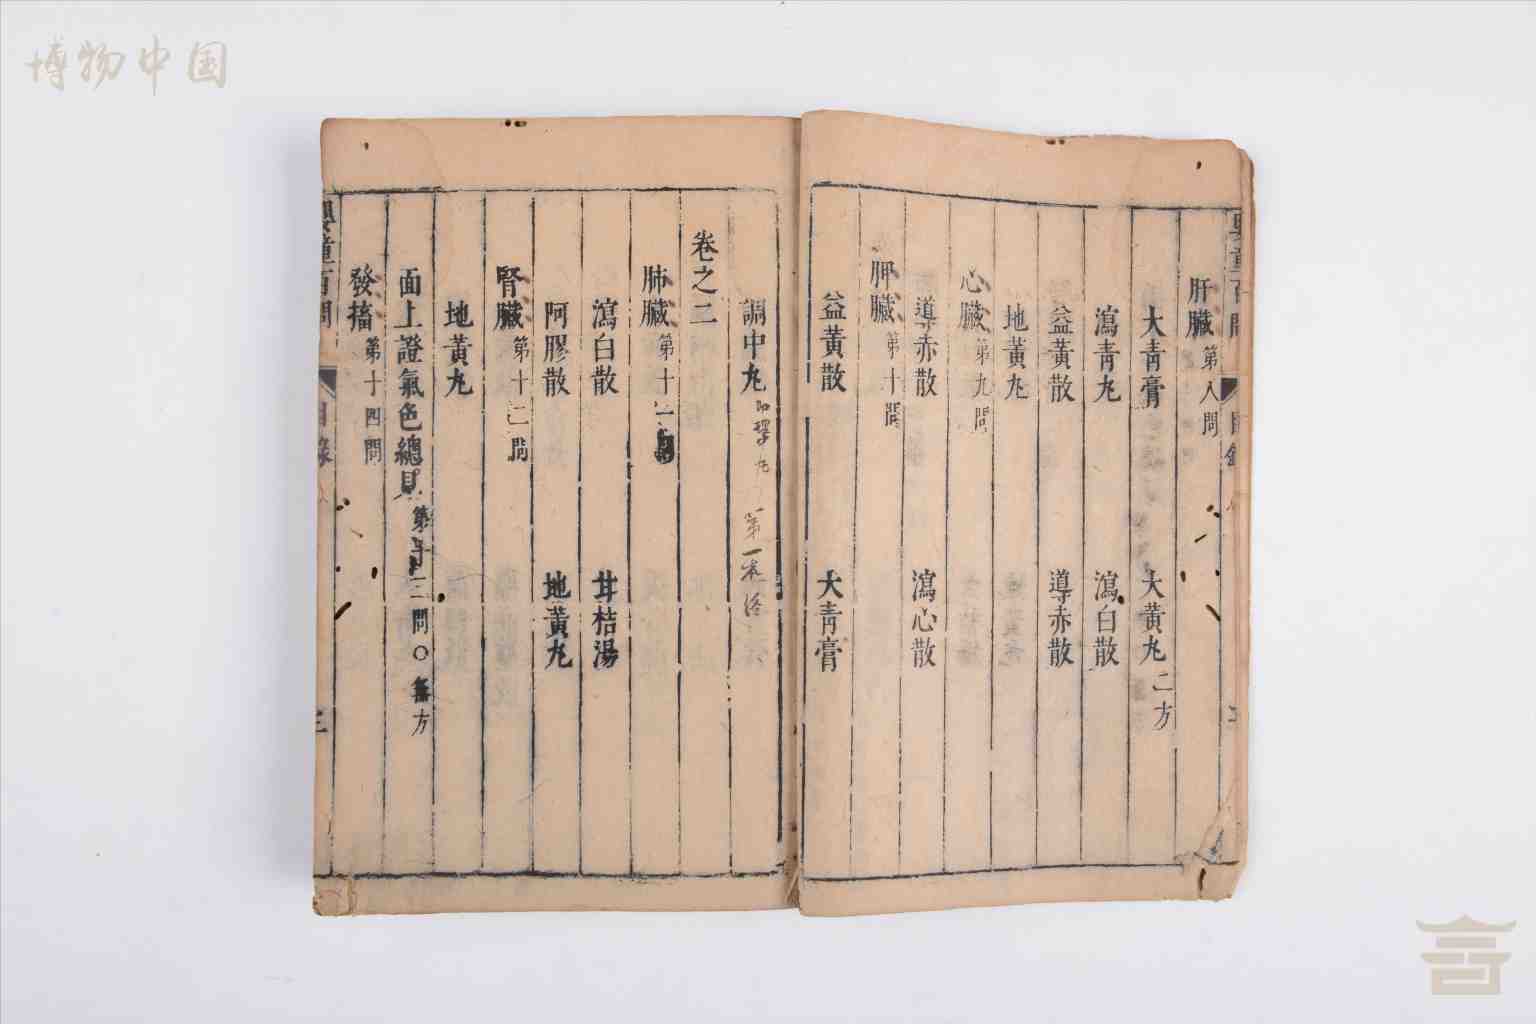 博物中国
嬰童百問
目錄
肝臟第八問
大青膏 大黃丸二方
瀉青丸 瀉白散
益黃散 導赤散
地黃丸
心臟第九問
導赤散 瀉心散
脾臟第十問
益黃散 大青膏
調中丸即理中丸 第一卷終
卷之二
肺臟第十一問
瀉白散 甘桔湯
阿膠散 地黃丸
腎臟第十二問
地黃丸
面上證氣色總見第十三問○無方
發搐第十四問
嬰童百問
目錄